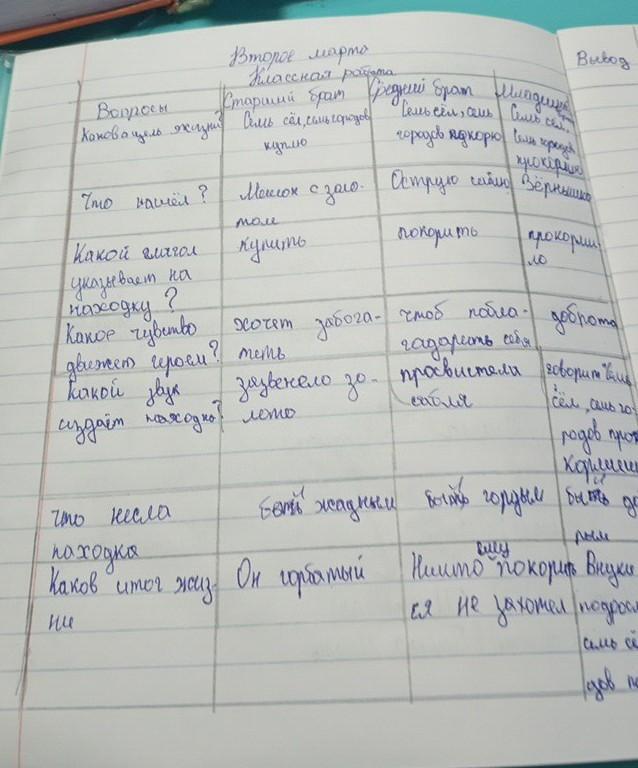 Второе марта
Классная работа
Вывод
Вопросы
Старший брат
Средний брат
Младший
Какова цель жизни?
Семь сёл, семь городов
куплю
Семь сёл, семь
городов покорю
Семь сёл,
семь городов
прокормлю
Что нашёл?
Мешок с золо-
том
Острую саблю
Зёрнышко
Какой глагол
указывает на
находку?
купить
покорить
прокорми-
ло
Какое чувство
движет героем?
хочет забога-
теть
чтоб побла-
гадареть себя
доброта
Какой звук
издаёт находка?
зазвенело зо-
лото
просвистела
сабля
говорит
сёл, семь го-
родов
Что несла
находка
быть жадным
быть гордым
быть
рым
Каков итог жиз-
ни
Он горбатый
Никто ему покорит
ся не захотел
Внуки
подрос
семь сё
дов